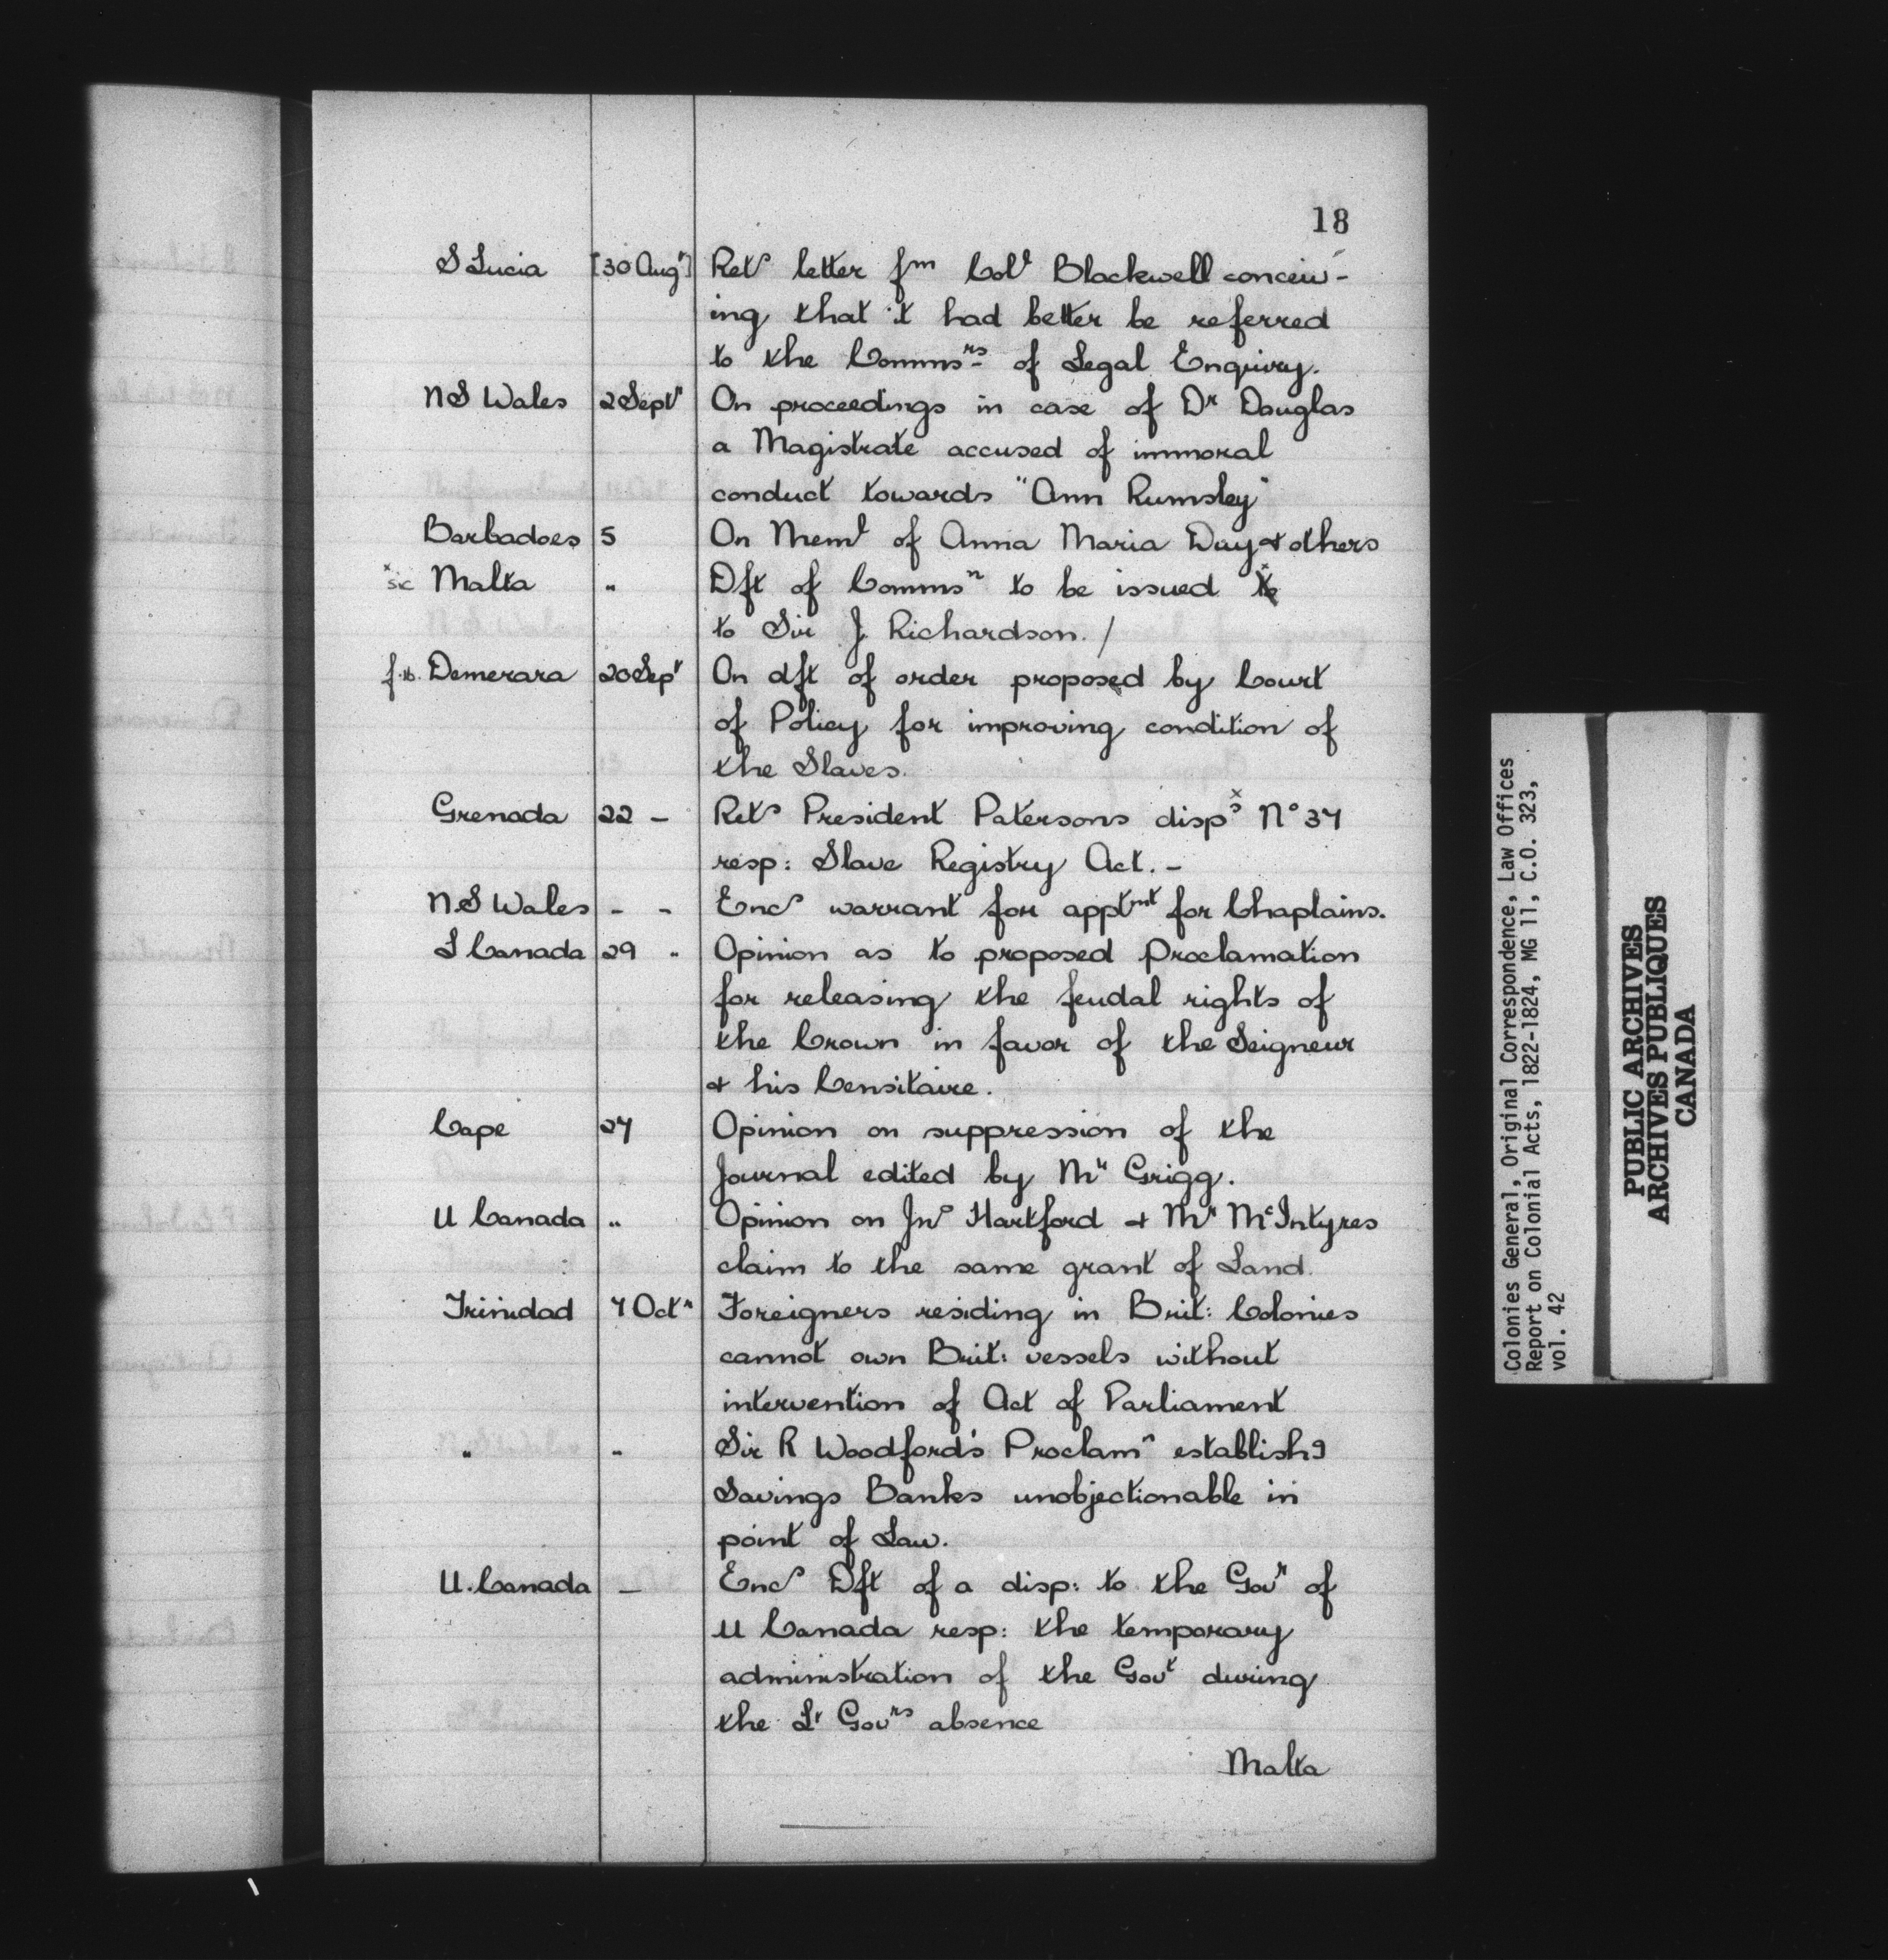 18
S Lucia [30 Augt] Rets letter fm Coll Blackwell conceiv-
ing that it had better be referred
to the Commsrs of Legal Enquiry.
N S Wales 2 Septr On proceedings in case of Dr Douglas
a Magistrate accused of immoral
conduct towards "Ann Rumsley"
Barbadoes 5 On Meml of Anna Maria Day & others
x sic Malta " Dft of Commsn to be issued to x
to Sir J. Richardson. /
f.16. Demerara 20 Sept On dft of order proposed by Court
of Policy for improving condition of
the Slaves.
Grenada 22 - Rets President Patersons disps x No 37
resp: Slave Registry Act. -
N.S Wales - - Encs warrant for apptmt for Chaplains.
L Canada 29 " Opinion as to proposed Proclamation
for releasing the feudal rights of
the Crown in favor of the Seigneur
& his Censitaire.
Cape 27 Opinion on suppression of the
Journal edited by Mr Grigg.
U Canada " Opinion on Jno Hartford & Mr McIntyres
claim to the same grant of Land.
Trinidad 7 Octr Foreigners residing in Brit: Colonies
cannot own Brit: vessels without
intervention of Act of Parliament
" " Sir R Woodford's Proclamn establishg
Savings Banks unobjectionable in
point of Law.
U. Canada - Encs Dft of a disp: to the Govr of
U Canada resp: the temporary
administration of the Govt during
the Lt Govrs absence
Malta
Colonies General, Original Correspondence, Law Offices
Report on Colonial Acts, 1822-1824, MG 11, C.O. 323,
vol. 42
PUBLIC ARCHIVES
ARCHIVES PUBLIQUES
CANADA